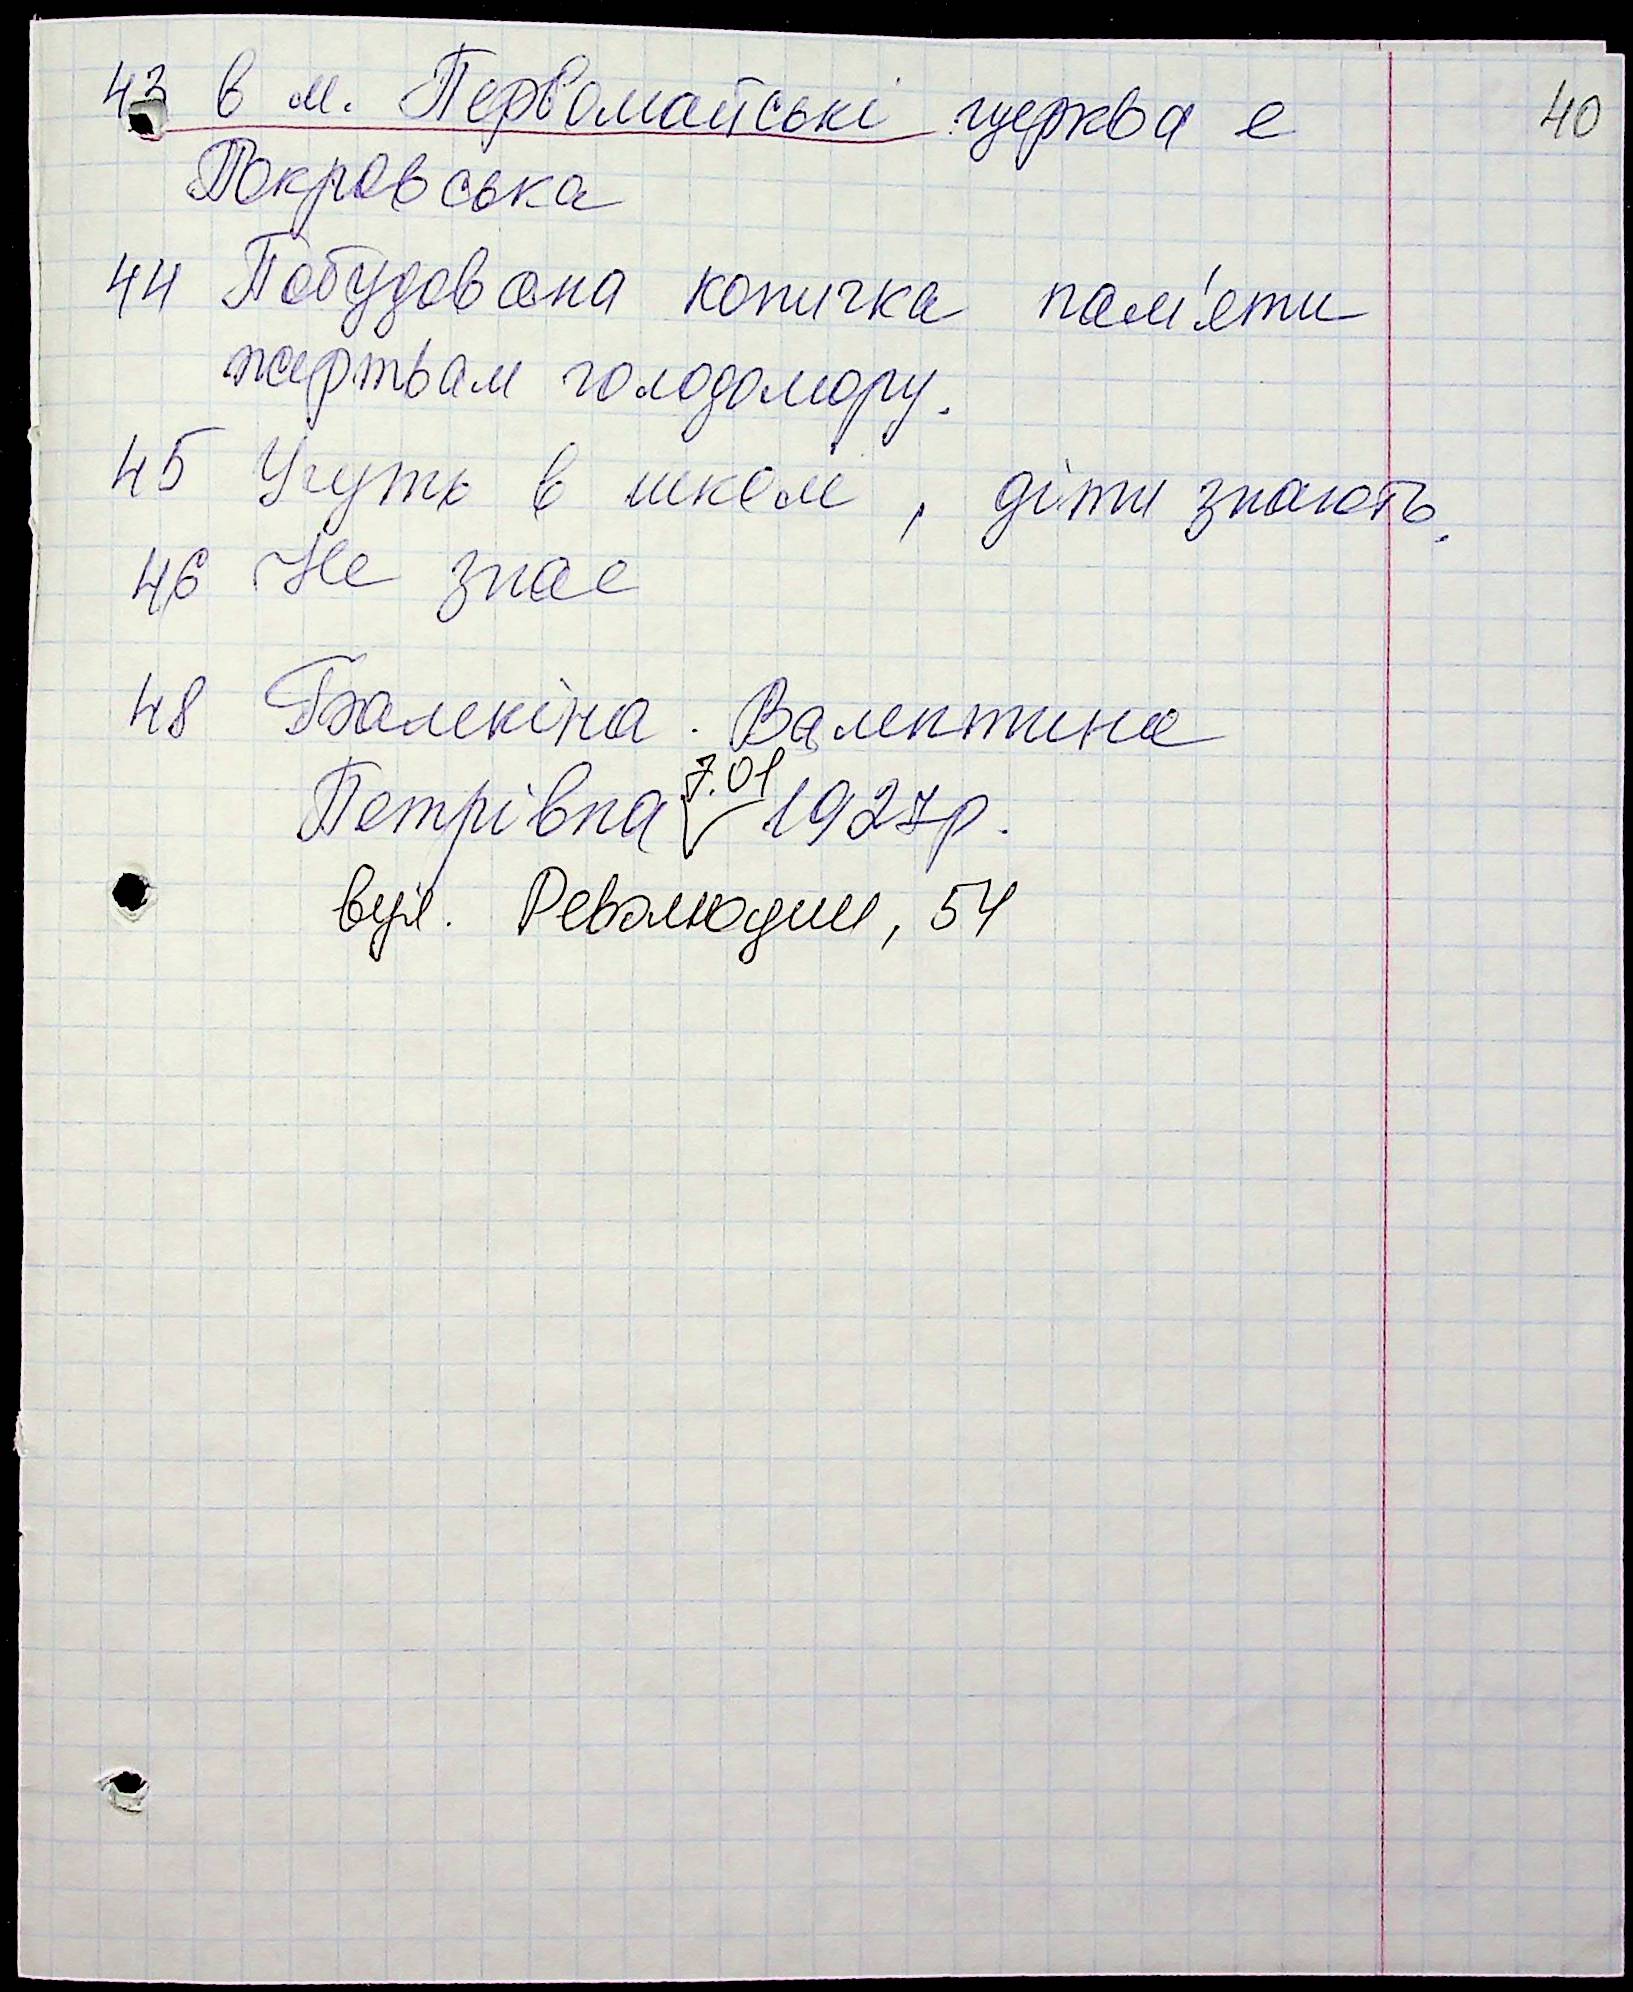 40
43 в м. Первомайські церква є
Покровська
44 Побудована копичка пам'яти
жертвам голодомору.
45 Учуть в школі, діти знають.
46 Не знає
48 Балекіна Валентина
Петрівна 7.01 1927р.
вул. Революции, 54